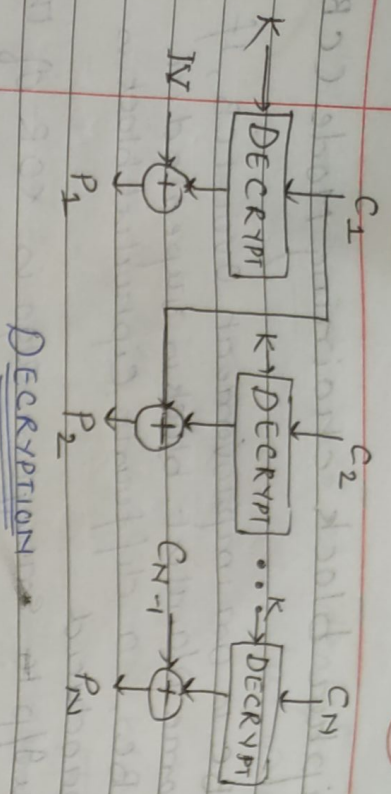 C1 C2 CN
K DECRYPT K DECRYPT ... K DECRYPT
IV CN-1
P1 P2 PN
DECRYPTION